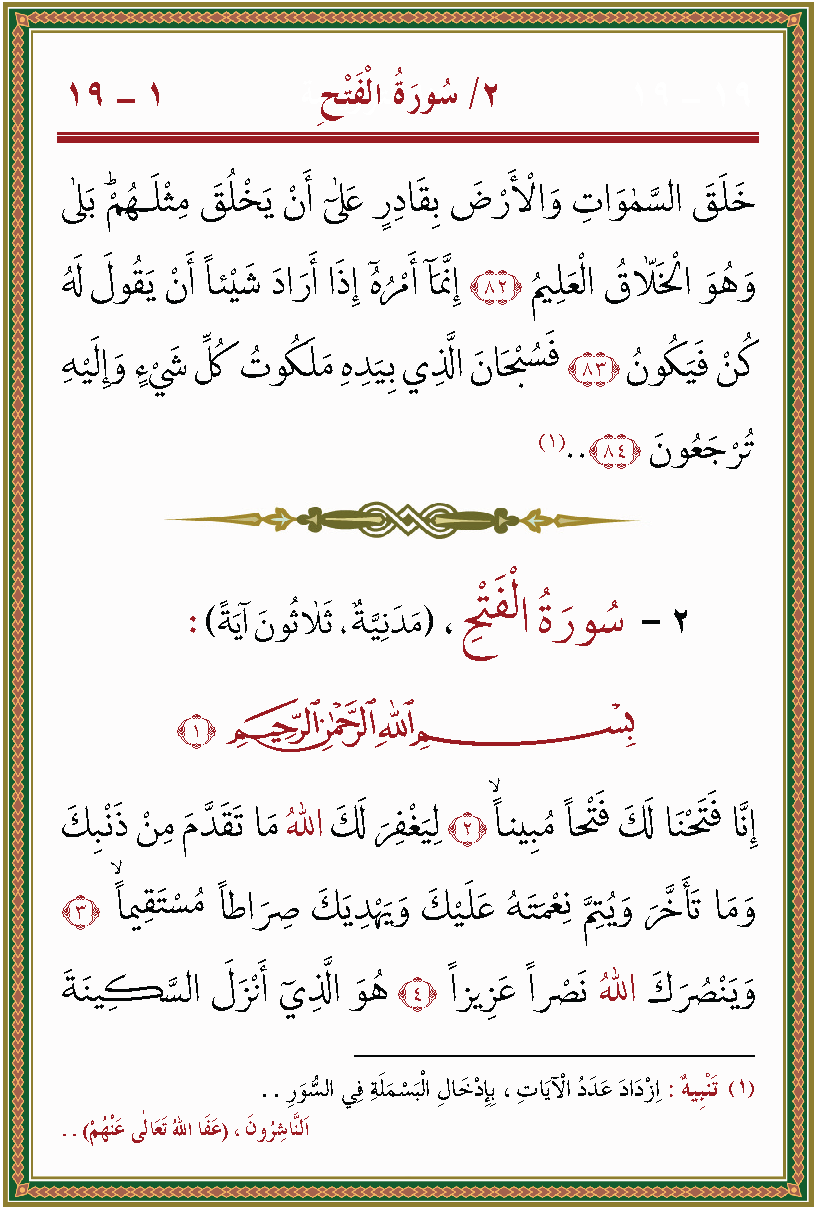 ٢/ سُورَةُ الْفَتْحِ ١ – ١٩
خَلَقَ السَّمٰوَاتِ وَالْأَرْضَ بِقَادِرٍ عَلٰٓى أَنْ يَخْلُقَ مِثْلَـهُمْ ؕ بَلٰى
وَهُوَ الْخَلَّاقُ الْعَلِيمُ ﴿٨٢﴾ إِنَّمَآ أَمْرُهُٓ إِذَا أَرَادَ شَيْئاً أَنْ يَقُولَ لَهُ
كُنْ فَيَكُونُ ﴿٨٣﴾ فَسُبْحَانَ الَّذِي بِيَدِهِ مَلَكُوتُ كُلِّ شَيْءٍ وَإِلَيْهِ
تُرْجَعُونَ ﴿٨٤﴾..(١)
٢ – سُورَةُ الْفَتْحِ ، (مَدَنِيَّةٌ، ثَلَاثُونَ آيَةً) :
بِسْمِ ٱللهِ ٱلرَّحْمٰنِ ٱلرَّحِيمِ ﴿١﴾
إِنَّا فَتَحْنَا لَكَ فَتْحاً مُبِيناً ۙ ﴿٢﴾ لِيَغْفِرَ لَكَ اللهُ مَا تَقَدَّمَ مِنْ ذَنْبِكَ
وَمَا تَأَخَّرَ وَيُتِمَّ نِعْمَتَهُ عَلَيْكَ وَيَهْدِيَكَ صِرَاطاً مُسْتَقِيماً ۙ ﴿٣﴾
وَيَنْصُرَكَ اللهُ نَصْراً عَزِيزاً ﴿٤﴾ هُوَ الَّذِيٓ أَنْزَلَ السَّكِينَةَ
(١) تَنْبِيهٌ : اِزْدَادَ عَدَدُ الْآيَاتِ ، بِإِدْخَالِ الْبَسْمَلَةِ فِي السُّوَرِ . .
اَلنَّاشِرُونَ ، (عَفَا اللهُ تَعَالٰى عَنْهُمْ) . .